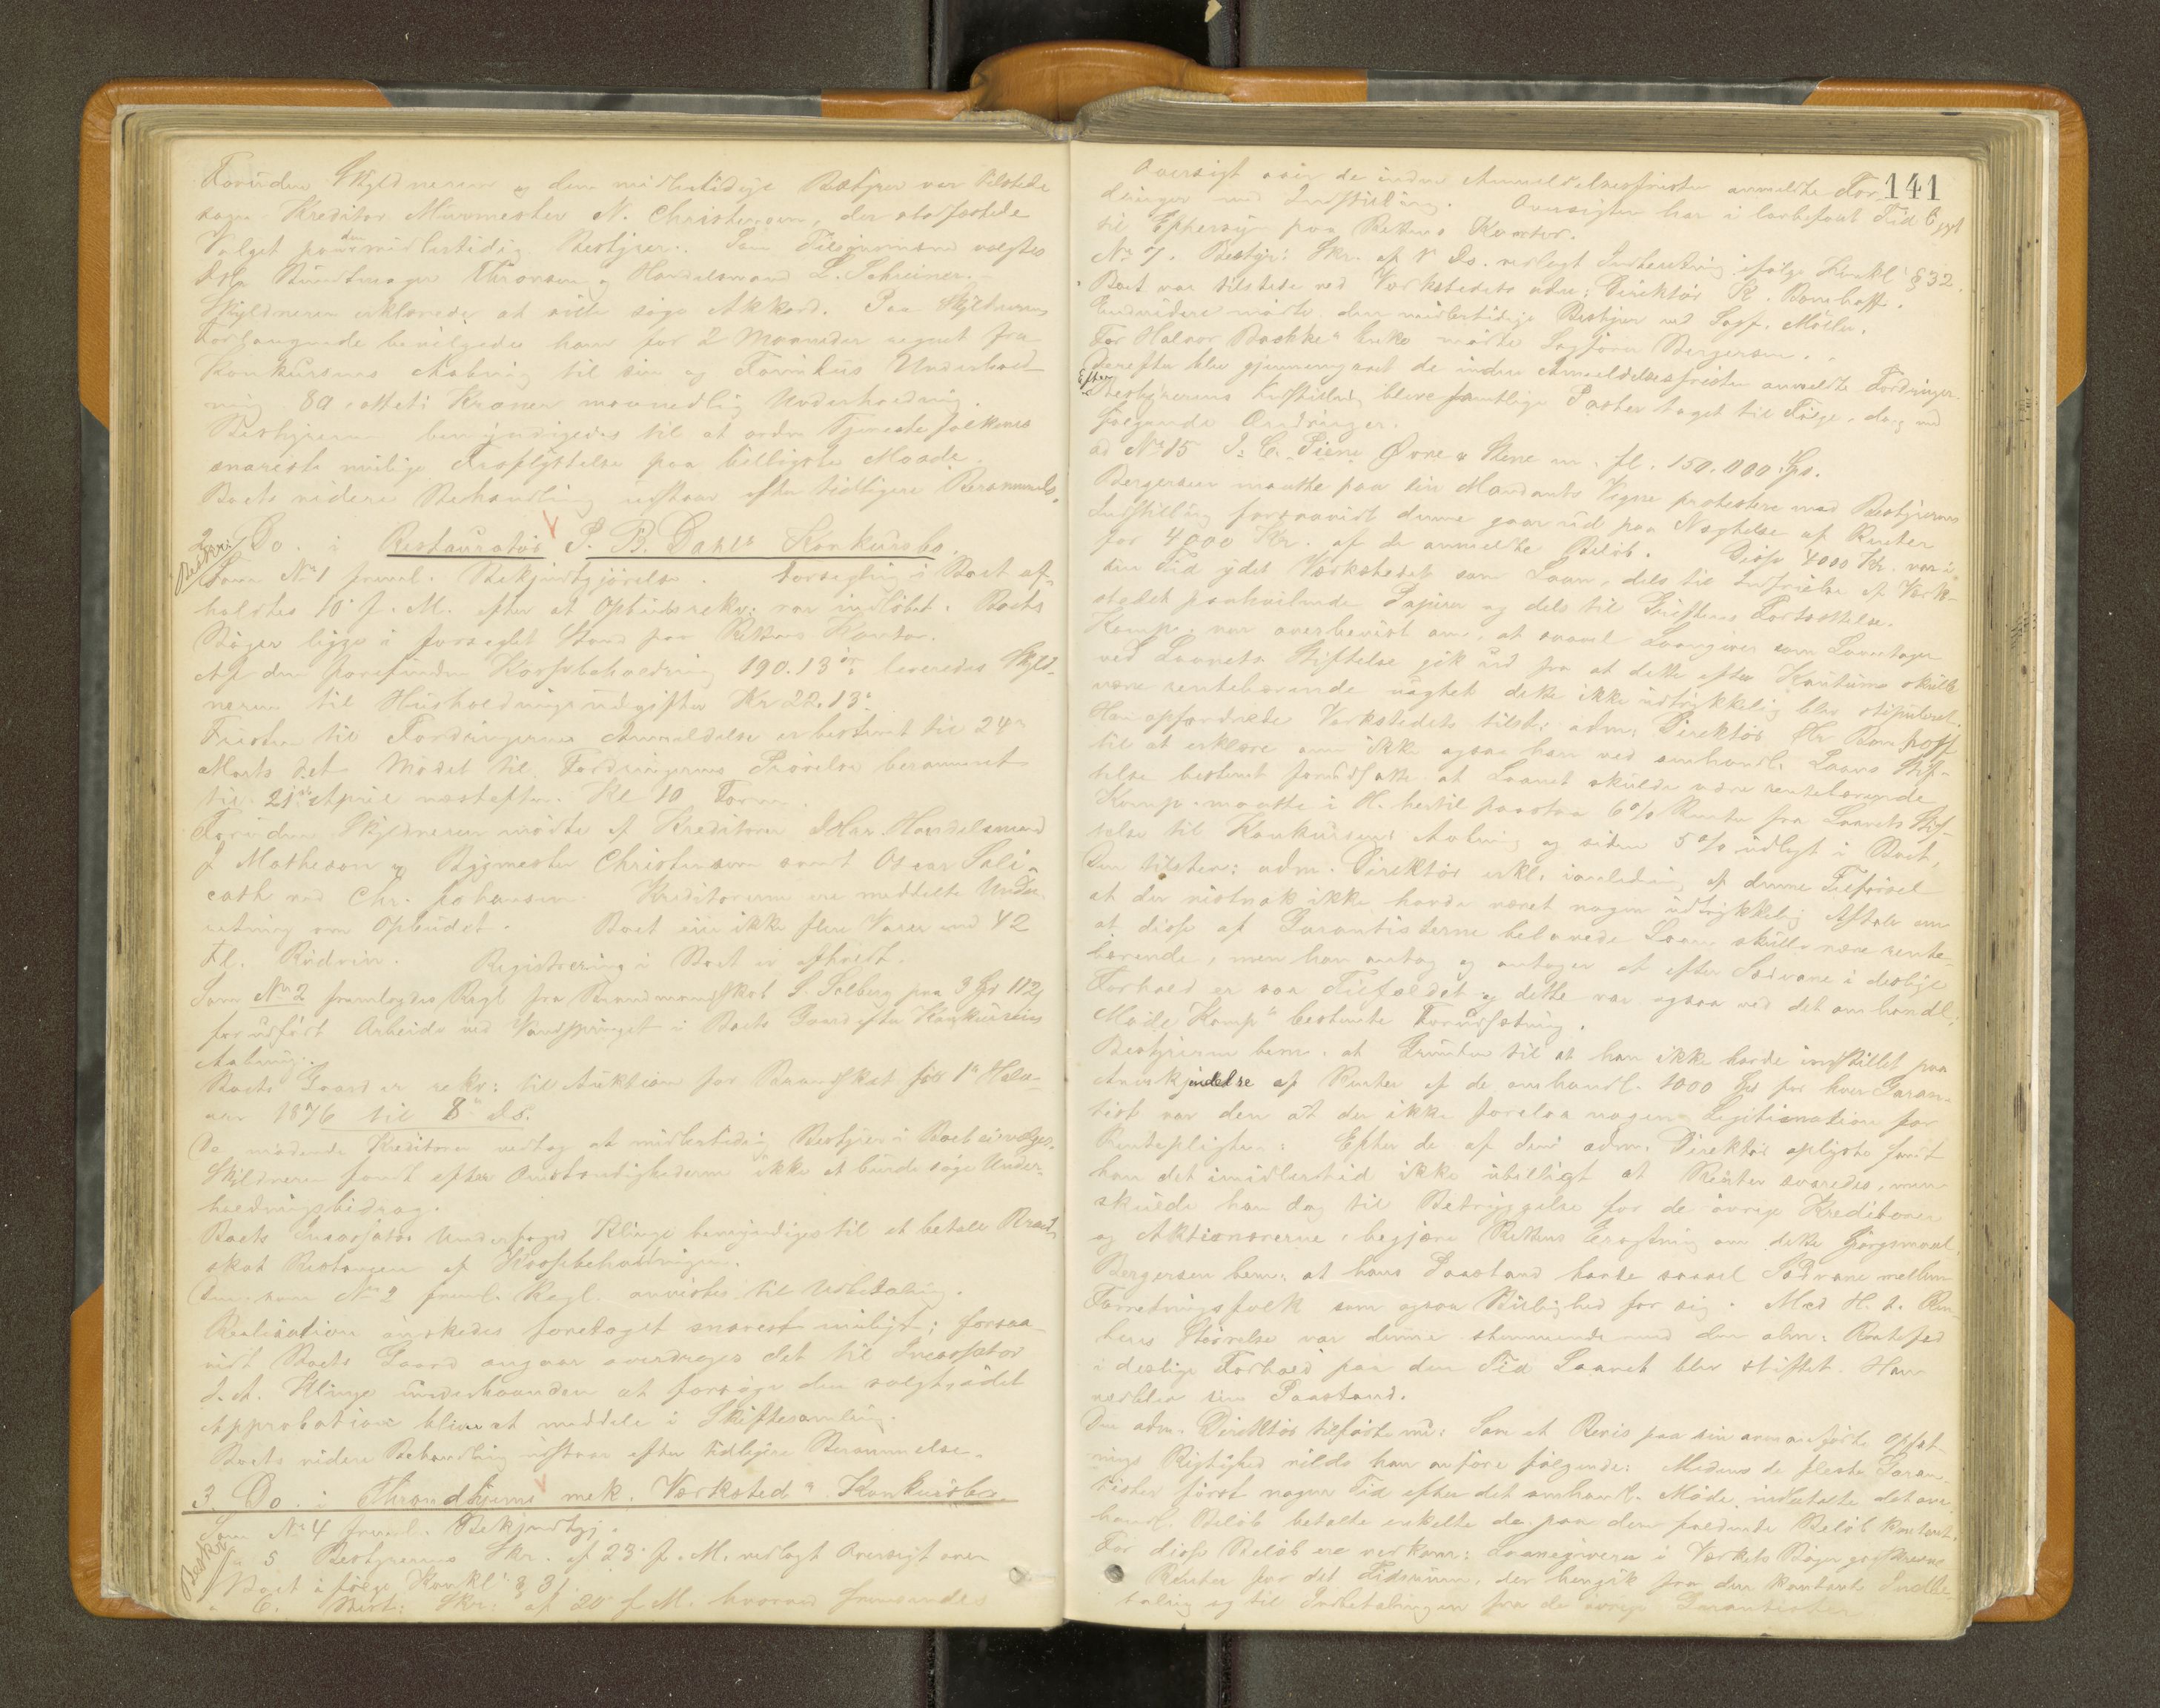 Foruden Skyldneren og den midlertidige Bestyrer var tilstede
som Kreditor Murmester N. Christensen, der stadfæstede
Valget paa den midlertidig Bestyrer. Som Tilsynsmænd valgtes
DHr. Buntmager Thronsen og Handelsmand L. Schreiner.
Skyldneren erklærede at ville søge Akkord. Paa Skyldnerens
Forlangende bevilgedes ham for 2 Maaneder regnet fra
Konkursens Aabning til sin og Families Underhold-
ning 80 otteti Kroner maanedlig Underholdning.
Bestyreren bemyndigedes til at ordne Tjenestefolkenes
snarest mulige Fraflyttelse paa billigste Maade.
Boets videre Behandling udstaar efter tidligere Berammels.
2. Do. i Restauratør P. B. Dahls Konkursbo.
Beskr:
Som No 1 freml. Bekjendtgjørelse. Forsegling i Boet af-
holdtes 10 f. M. efter at Opbudsrekv: var indløbet. Boets
Bøger ligge i forseglet Stand paa Rettens Kontor.
Af den forefundne Kassebeholdning 190.13 leveredes Skyld-
neren til Husholdningsudgifter Kr 22.13.
Fristen til Fordringernes Anmeldelse er bestemt til 24
Marts d.A. Mødet til Fordringernes Prøvelse berammet
til 21 April næstefter Kl 10 Form.
Foruden Skyldneren mødte af Kreditorer DHrr. Handelsmand
J Matheson og Bygmester Christensen samt Oscar Sali-
cath ved Chr. Johansen. Kreditorerne ere meddelte Under-
retning om Opbudet. Boet eier ikke flere Varer end 42
Fl. Rødvin. Registrering i Boet er afholdt.
Som No 2 fremlagdes Regl. fra S. Solberg paa 3
for udført Arbeide ved Vandspringet i Boets Gaard efter Konkursens
Aabning.
Boets Gaard er rekv: til Auktion for Brandskat for 1ste Halv-
aar 1876 til 8 ds.
De mødende Kreditorer vedtog at midlertidig Bestyrer i Boet ei vælges.
Skyldneren fandt efter Omstændighederne ikke at burde søge Under-
holdningsbidrag.
Boets Incassator Underfoged Klinge bemyndiges til at betale Brand-
skat Restancen af Kassebeholdningen.
Den som No 2 freml. Regl. anvistes til Udbetaling.
Realisation ønskedes foretaget snarest muligt; forsaa-
vidt Boets Gaard angaar overdrages det til Incassator
J. A. Klinge underhaanden at forsøge den solgt, idet
Approbation bliver at meddele i Skiftesamling.
Boets videre Behandling udstaar efter tidligere Berammelse.
3. Do. i Throndhjems mek. Værksteds Konkursbo.
Som No 4 freml. Bekjendtgj.
Beskr
5 Bestyrerens Skr. af 23 f. M. vedlagt Oversigt over
Boet ifølge Konkl § 31
6. Best: Skr: af 20 f. M. hvorved fremsendes
141
Oversigt over de inden Anmeldelsesfristen anmeldte For-
dringer med Indstilling. Oversigten har i lovbefalet Tid ligget
til Eftersyn paa Rettens Kontor.
No 7. Bestyr: Skr. af ds. vedlagt Indberetning ifølge Konkl § 32.
Boet var tilstede ved Værkstedets adm: Direktør
Endvidere mødte den midlertidige Bestyrer ved Sagf. Möller.
For Halvor Enke mødte Sagfører Bergersen.
Derefter blev gjennemgaaet de inden Anmeldelsesfristen anmeldte Fordringer.
Efter Bestyrerens Indstilling bleve samtlige Poster taget til Følge, dog med
følgende Ændringer.
ad No 15
Bergersen maatte paa sin Mandants Vegne protestere mod Bestyrerens
Indstilling forsaavidt denne gaar ud paa Nægtelse af Renter
for 4000 Kr. af de anmeldte Beløb. Disse 4000 Kr. var i
sin Tid ydet Værkstedet som Laan, dels til Indfrielse af Værk-
stedet paahvilende Papirer og dels til Driftens Fortsættelse.
Komp. var overbevist om, at saavel Laangiver som Laantager
ved Laanets Stiftelse gik ud fra at dette efter Kutume skulde
være rentebærende uagtet dette ikke udtrykkelig blev stipuleret.
Han opfordrede Værkstedets tilst: adm: Direktør Hr
til at erklære om ikke ogsaa han ved omhandl. Laans Stif-
telse bestemt forudsatte at Laanet skulde være rentebærende
Komp. maatte i H. hertil paastaa 6% Rente fra Laanets Stif-
telse til Konkursens Aabning og siden 5% udlagt i Boet.
Den tilsted: adm. Direktør erkl. i anledning af denne Tilførsel
at der vistnok ikke havde været nogen udtrykkelig Aftale om
at disse af Garantisterne belaante Laan skulde være rente-
bærende, men han antog og antager at efter Sædvane i deslige
Forhold er saa Tilfældet og dette var ogsaa ved det omhandl.
Møde Komps bestemte Forudsætning.
Bestyreren bem. at Grunden til at han ikke havde indstillet paa
Anerkjendelse af Renter af de omhandl. 1000 for hver Garan-
tist var den at der ikke forelaa nogen Legitimation for
Rentepligten: Efter de af den adm. Direktør oplyste fandt
han det imidlertid ikke ubilligt at Renter svaredes, men
skulde han dog til Betryggelse for de øvrige Kreditorer
og Aktionærerne begjære Rettens Eragtning om dette Spørgsmaal.
Bergersen bem. at hans Paastand havde saavel Sædvane mellem
Forretningsfolk som ogsaa Billighed for sig. Med H. t. Ren-
tens Størrelse var denne stemmende med den alm: Rentefod
i deslige Forhold paa den Tid Laanet blev stiftet. Han
nedlagde sin Paastand.
Den adm. Direktør tilførte nu: Som et Bevis paa sin ovenanførte Opfat-
nings Rigtighed vilde han anføre følgende: Medens de fleste Garan-
tister først nogen Tid efter det omhandl. Møde indbetalte det om-
handl. Beløb betalte enkelte de paa dem faldende Beløb kontant.
For disse Beløb ere vedkom: Laangivere i Værkets Bøger godskrevne
Renter for det Tidsrum, der hengik fra den kontante Indbe-
taling og til Indbetalingen fra de øvrige Garantister